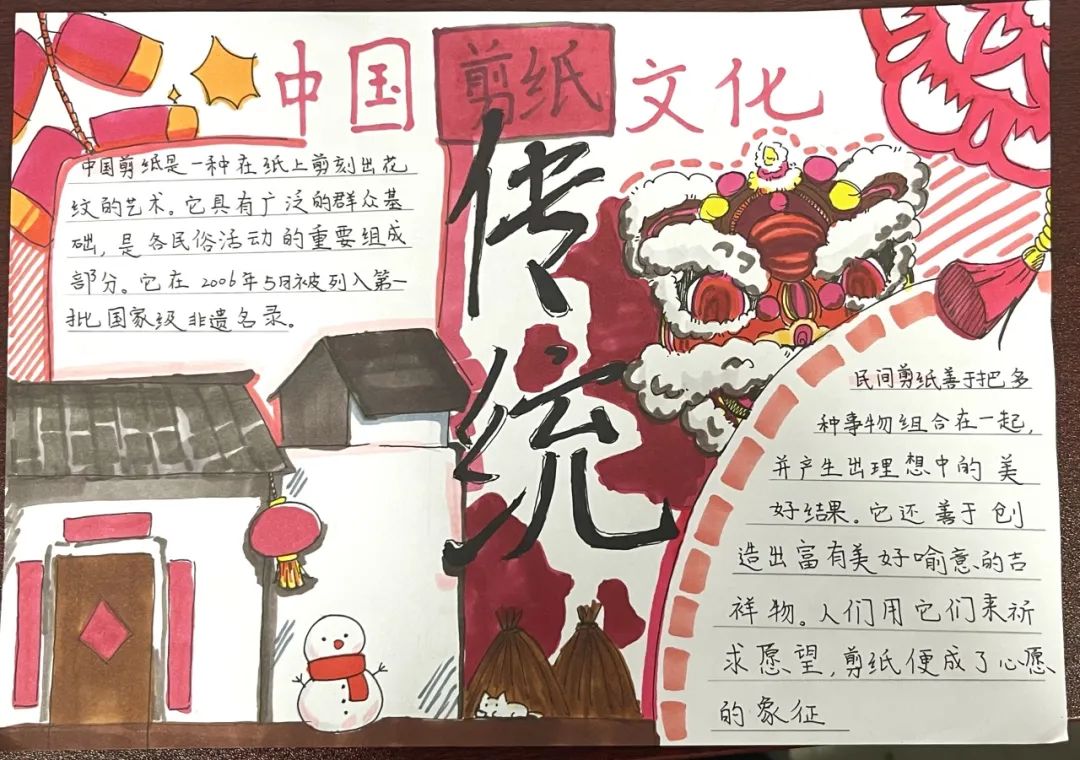 中国剪纸文化
传统
中国剪纸是一种在纸上剪刻出花
纹的艺术。它具有广泛的群众基
础，是各民俗活动的重要组成
部分。它在2006年5月被列入第一
批国家级非遗名录。
民间剪纸善于把多
种事物组合在一起，
并产生出理想中的美
好结果。它还善于创
造出富有美好喻意的吉
祥物。人们用它们来祈
求愿望，剪纸便成了心愿
的象征